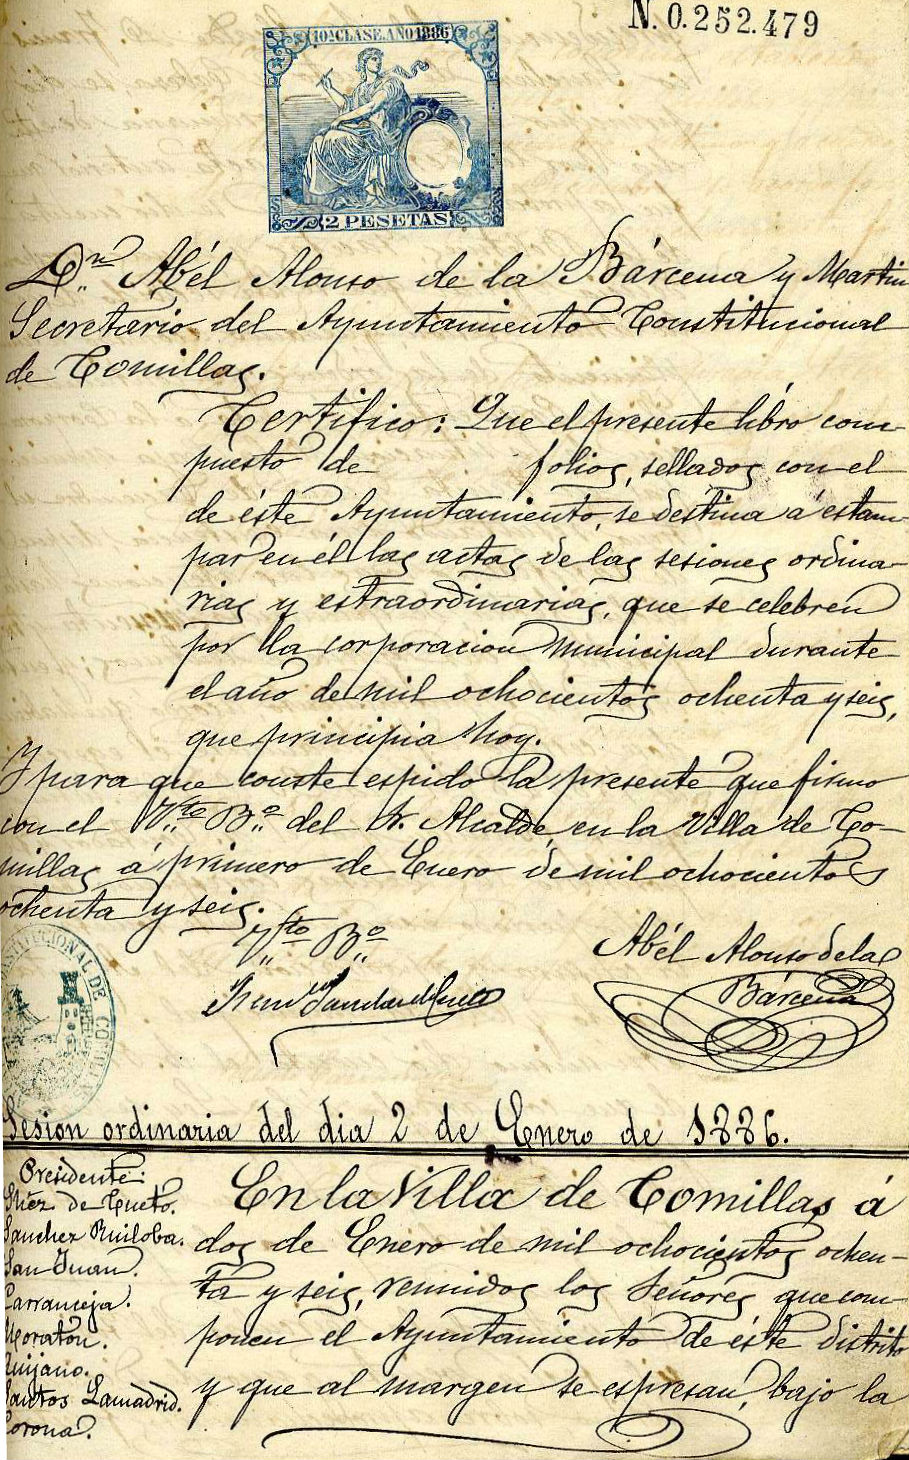 N. 0.252.479
10ª CLASE. AÑO 1886
2 PESETAS
Dn. Abél Alonso de la Bárcena y Martin
Secretario del Ayuntamiento Constitucional
de Comillas.
Certifico: Que el presente libro com-
puesto de folios, sellados con el
de éste Ayuntamiento, se destina á estam-
par en él las actas de las sesiones ordina-
rias y estraordinarias, que se celebren
por la corporacion municipal durante
el año de mil ochocientos ochenta y seis,
que principia hoy.
Y para que conste espido la presente que firmo
con el Vto. Bo. del Sr. Alcalde, en la Villa de Co-
millas á primero de Enero de mil ochocientos
ochenta y seis.
Vto. Bo.
Abél Alonso de la
Bárcena
CONAL DE COMILLAS
Sesion ordinaria del dia 2 de Enero de 1886.
Presidente:
de Cueto.
Sanchez Ruiloba.
San Juan.
Carranceja.
Moratón.
Quijano.
Santos Lamadrid.
Corona.
En la Villa de Comillas á
dos de Enero de mil ochocientos ochen-
ta y seis, reunidos los Señores que com-
ponen el Ayuntamiento de éste distrito
y que al margen se espresan, bajo la